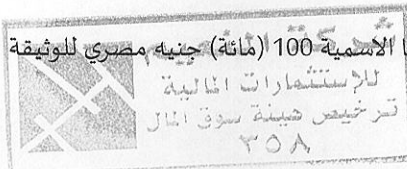 ا الاسمية 100 (مائة) جنيه مصري للوثيقة
شركة
للإستثمارات المالية
ترخيص هيئة سوق المال
٣٥٨